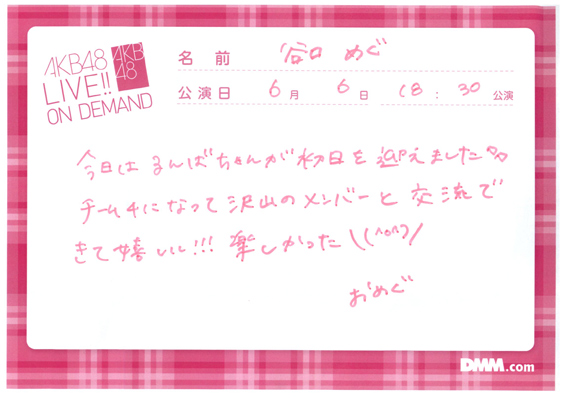 AKB48
LIVE!!
ON DEMAND
AKB
48
名前 谷口 めぐ
公演日 6月 6日 18:30 公演
今日は るんばちゃんが 初日を 迎えました
チーム4になって 沢山のメンバーと 交流で
きて嬉しい!!! 楽しかった\(^o^)/
おめぐ
DMM.com